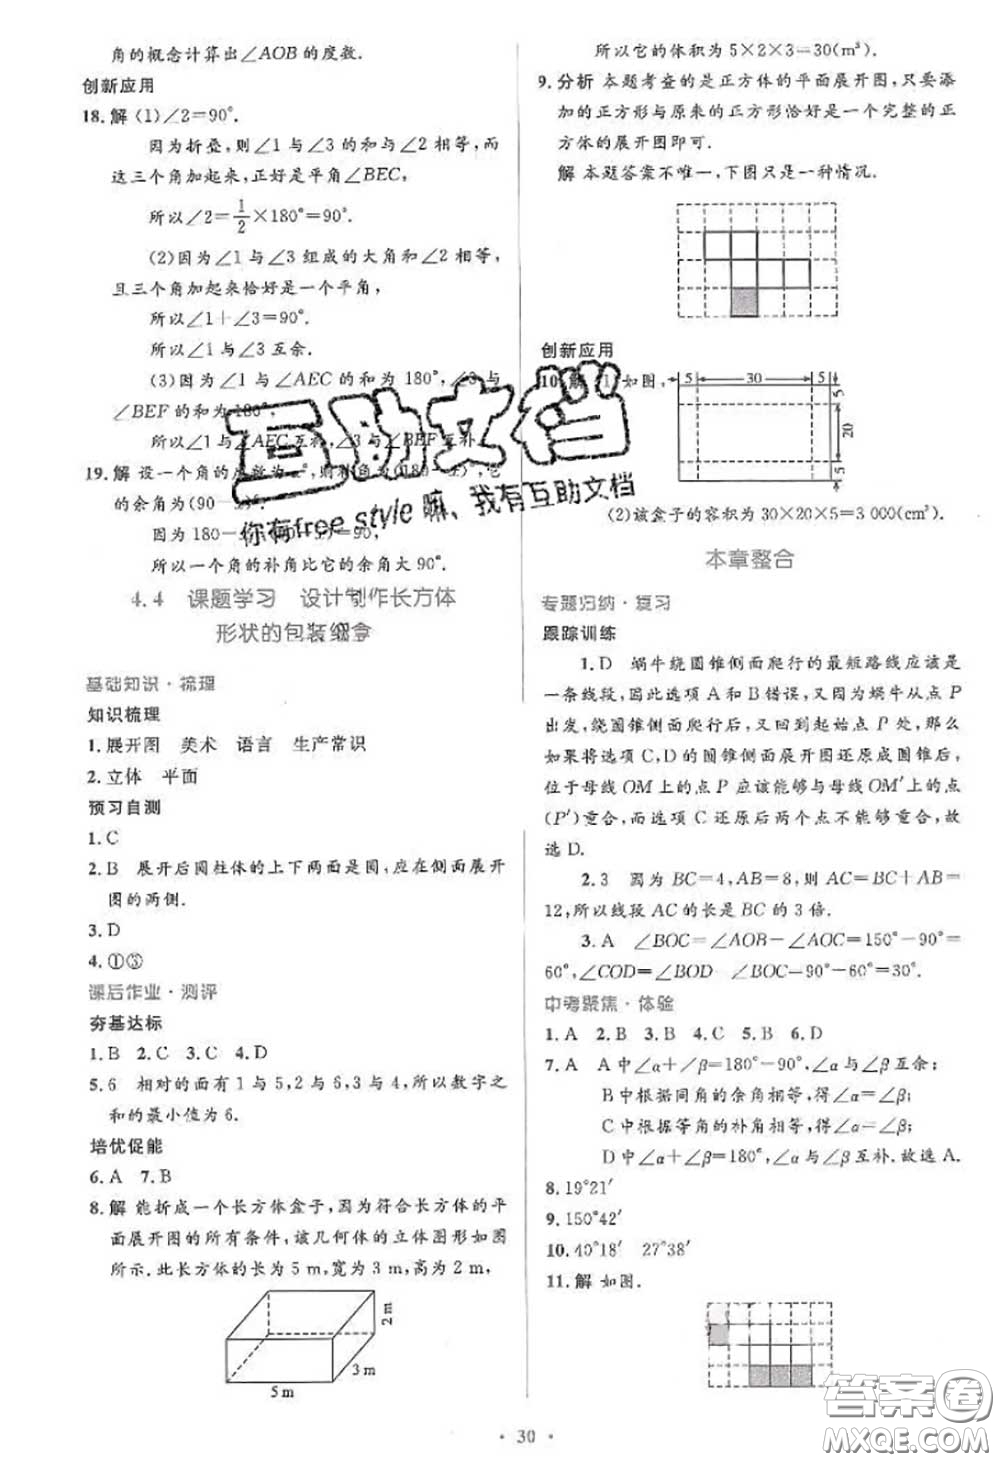 角的概念计算出∠AOB的度数.
创新应用
18.解 (1)∠2=90°.
因为折叠,则∠1与∠3的和与∠2相等,而
这三个角加起来,正好是平角∠BEC,
所以∠2=1/2×180°=90°.
(2)因为∠1与∠3组成的大角和∠2相等,
且三个角加起来恰好是一个平角,
所以∠1+∠3=90°.
所以∠1与∠3互余.
(3)因为∠1与∠AEC的和为180°,∠3与
∠BEF的和为180°,
所以∠1与∠AEC互补,∠3与∠BEF互补.
19.解 设一个角的度数为x°,则补角为(180-x)°,它
的余角为(90-x)°.
因为180-x-(90-x)=90,
所以一个角的补角比它的余角大90°.
4.4 课题学习 设计制作长方体
形状的包装纸盒
基础知识·梳理
知识梳理
1.展开图 美术 语言 生产常识
2.立体 平面
预习自测
1.C
2.B 展开后圆柱体的上下两面是圆,应在侧面展开
图的两侧.
3.D
4.①③
课后作业·测评
夯基达标
1.B 2.C 3.C 4.D
5.6 相对的面有1与5,2与6,3与4,所以数字之
和的最小值为6.
培优促能
6.A 7.B
8.解 能折成一个长方体盒子,因为符合长方体的平
面展开图的所有条件,该几何体的立体图形如图
所示.此长方体的长为5 m,宽为3 m,高为2 m,
2 m
3 m
5 m
所以它的体积为5×2×3=30(m³).
9.分析 本题考查的是正方体的平面展开图,只要添
加的正方形与原来的正方形恰好是一个完整的正
方体的展开图即可.
解 本题答案不唯一,下图只是一种情况.
创新应用
10.解 (1)如图,
5 30 5
5
20
5
(2)该盒子的容积为30×20×5=3 000(cm³).
本章整合
专题归纳·复习
跟踪训练
1.D 蜗牛绕圆锥侧面爬行的最短路线应该是
一条线段,因此选项A和B错误,又因为蜗牛从点P
出发,绕圆锥侧面爬行后,又回到起始点P处,那么
如果将选项C,D的圆锥侧面展开图还原成圆锥后,
位于母线OM上的点P应该能够与母线OM′上的点
(P′)重合,而选项C还原后两个点不能够重合,故
选D.
2.3 因为BC=4,AB=8,则AC=BC+AB=
12,所以线段AC的长是BC的3倍.
3.A ∠BOC=∠AOB-∠AOC=150°-90°=
60°,∠COD=∠BOD-∠BOC=90°-60°=30°.
中考聚焦·体验
1.A 2.B 3.B 4.C 5.B 6.D
7.A A中∠α+∠β=180°-90°,∠α与∠β互余;
B中根据同角的余角相等,得∠α=∠β;
C中根据等角的补角相等,得∠α=∠β;
D中∠α+∠β=180°,∠α与∠β互补.故选A.
8.19°21′
9.150°42′
10.40°18′ 27°38′
11.解 如图.
· 30 ·
互助文档
你有free style嘛、我有互助文档
答案卷
MXQE.COM